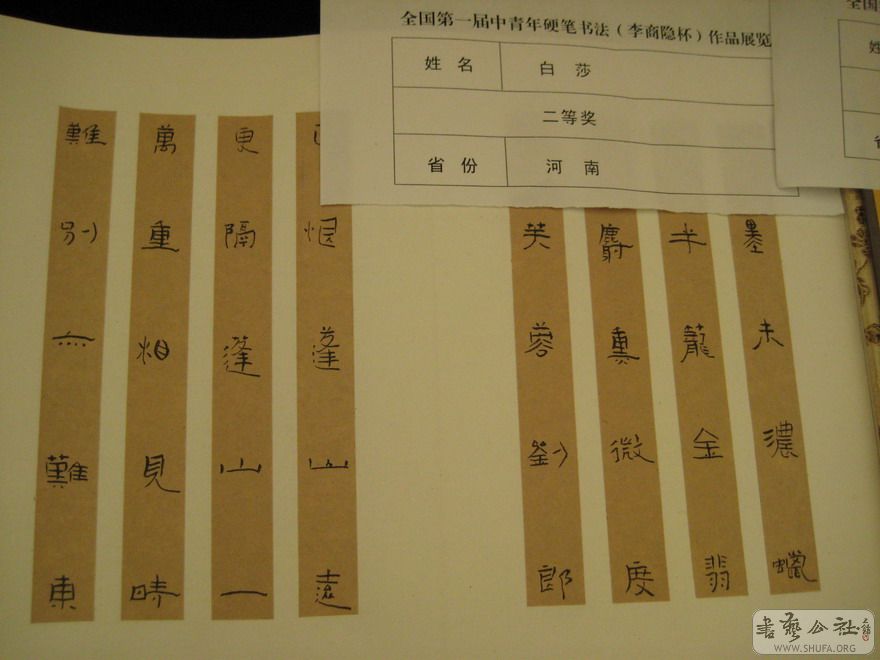 全国第一届中青年硬笔书法（李商隐杯）作品展览
姓 名 白 莎
二等奖
省 份 河 南
全国
墨未濃蠟
半籠金翡
麝熏微度
芙蓉劉郎
恨蓬山遠
更隔蓬山一
萬重相見時
難別亦難東
書藝公社
WWW.SHUFA.ORG